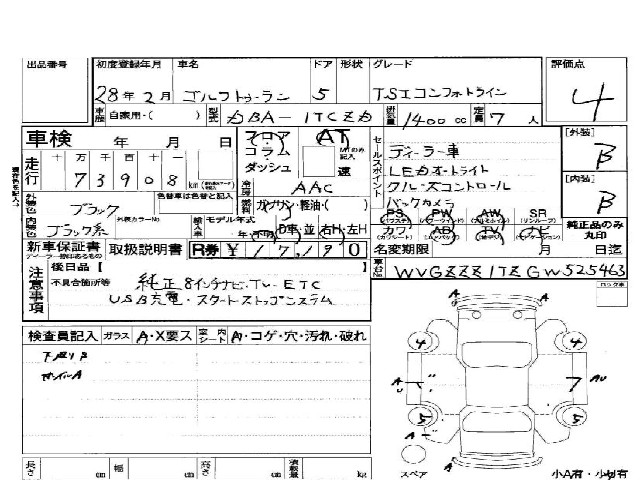 出品番号 初度登録年月 車名 ドア 形状 グレード 評価点
28年2月 ゴルフトゥーラン 5 TSIコンフォートライン 4
車歴 自家用・( ) 型式 DBA-1TCZD 排気量 1400cc 定員 7人
車検 年 月 日 フロア コラム・ダッシュ AT MTのみ記入 速
走行 十 万 千 百 十 一
73908 km
冷房 AAC
セールスポイント
ディーラー車
LEDオートライト
クルーズコントロール
バックカメラ
[外装] B
[内装] B
外装色 ブラック 色替車は色替と記入 燃料 ガソリン・軽油・( )
内装色 ブラック系 外装カラーNo. 輸入車 モデル年式 年 D車・並 右H・左H
PS PW AW SR
カワ AB TV ナビ
純正品のみ丸印
新車保証書 取扱説明書 R券 ¥17,190 名変期限 月 日迄
車台No. WVGZZZ1TZGW525463
注意事項 後日品 [ ]
不具合箇所等 純正8インチナビ,TV-ETC
USB充電・スタートストップシステム
検査員記入 ガラス A・X要ス 室内シート A・コゲ・穴・汚れ・破れ
下廻りP
ホイルA
A
4 4
A U 7 AU
5 5
A
A
スペア
小A有・小U有
長さ cm 幅 cm 高さ cm 積載量 kg